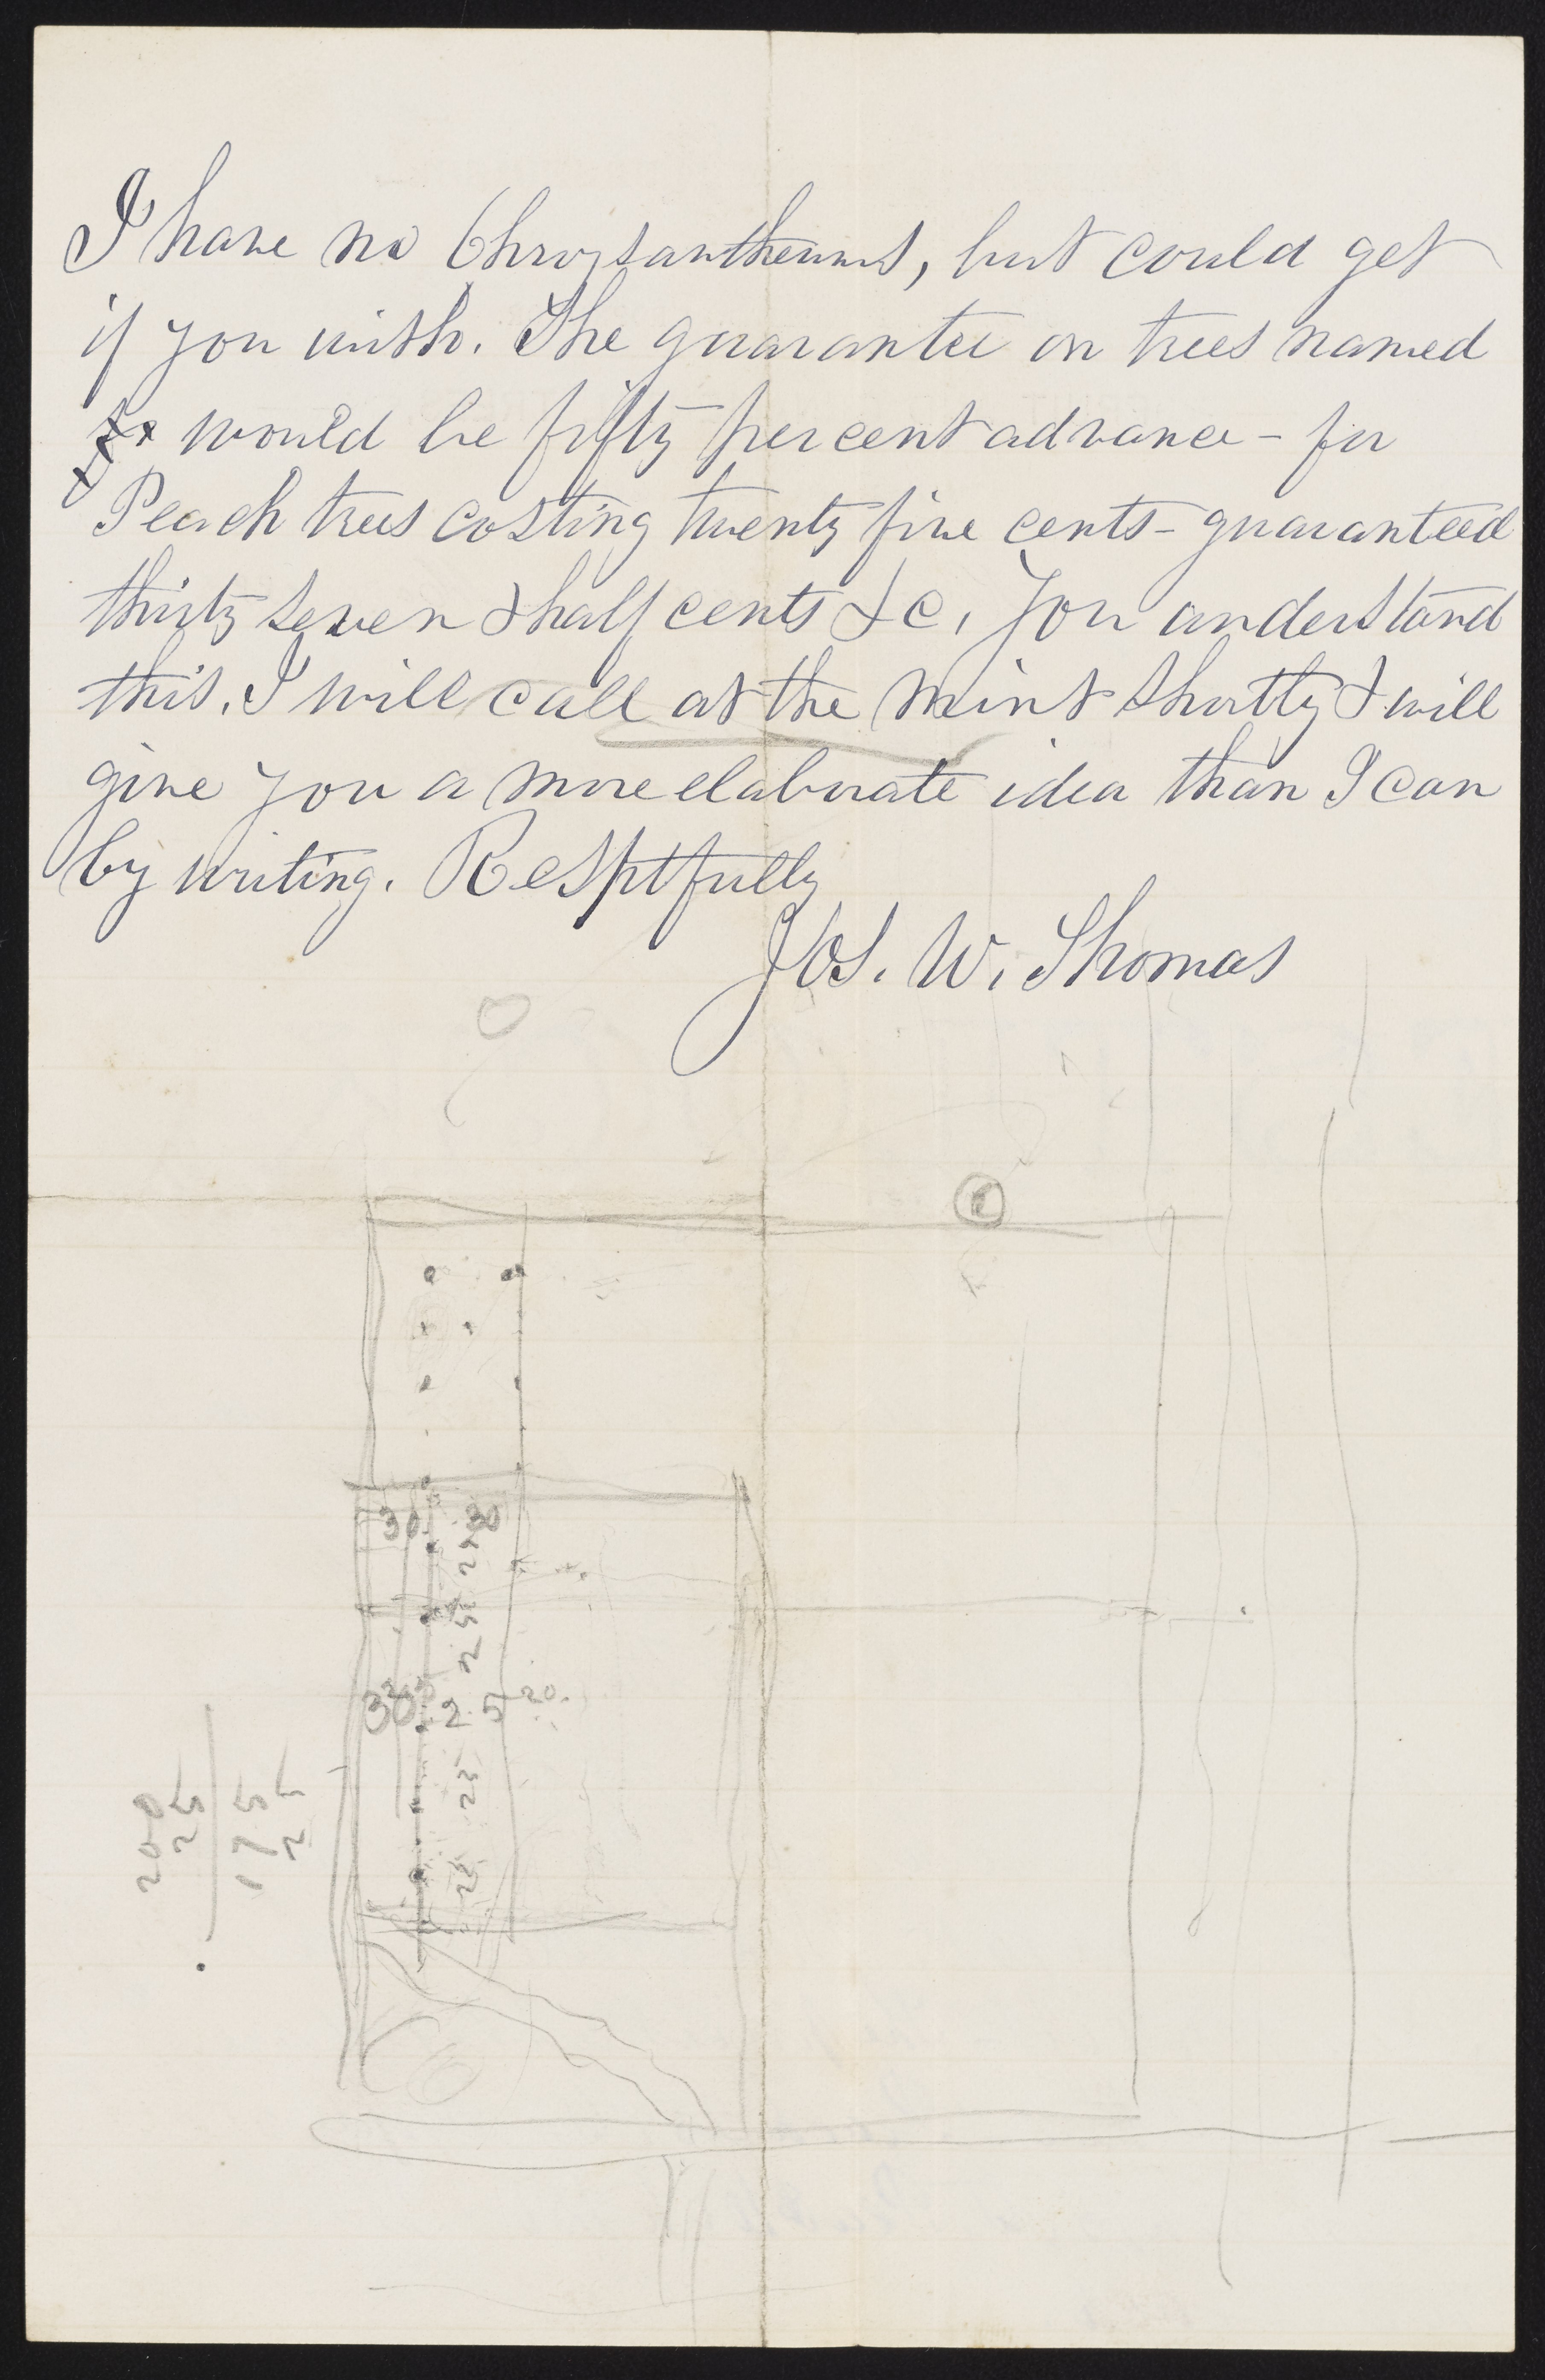 I have no Chrysanthemums, but could get
if you wish. The guarantee on trees named
would be fifty per cent advance - for
Peach trees costing twenty five cents - guaranteed
thirty seven & half cents &c, You understand
this. I will call at the Mint shortly & will
give you a more elaborate idea than I can
by writing. Resptfully
Jos. W. Thomas
30 30
25
25
30 25 20
25
25
200
25
175
25